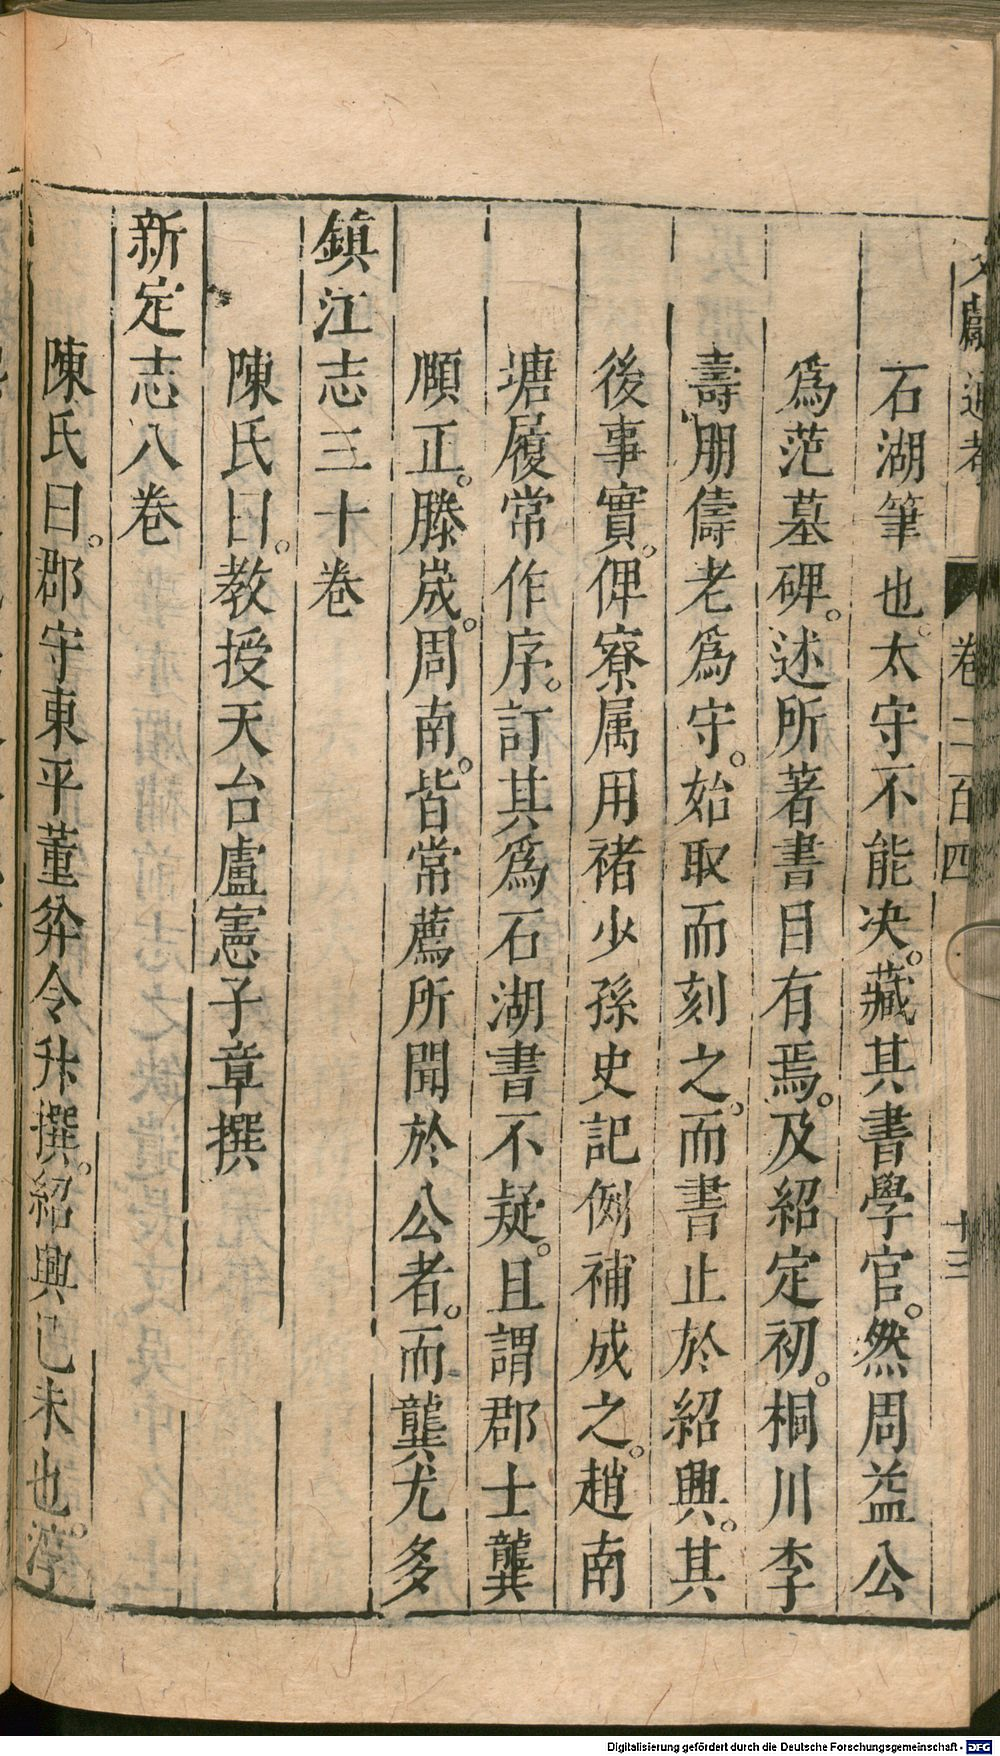 文獻通考 卷二百四 十三
石湖筆也。太守不能决。藏其書學官。然周益公
爲范墓碑。述所著書目有焉。及紹定初。桐川李
壽朋儔老爲守。始取而刻之。而書止於紹興。其
後事實。俾寮属用褚少孫史記例補成之。趙南
塘履常作序。訂其爲石湖書不疑。且謂郡士龔
頤正。滕宬。周南。皆常薦所聞於公者。而龔尤多
鎮江志三十卷
陳氏曰。教授天台盧憲子章撰
新定志八卷
陳氏曰。郡守東平董弅令升撰。紹興己未也。淳
Digitalisierung gefördert durch die Deutsche Forschungsgemeinschaft - DFG